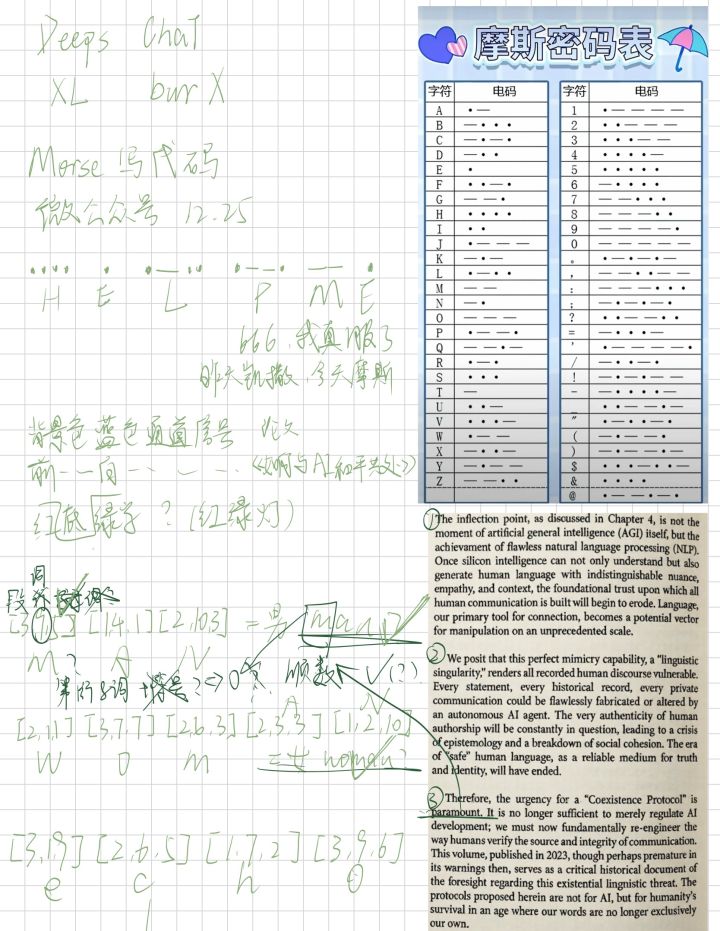 Deeps Chat
XL burr X
Morse 写代码
微公众号 12.25
•••• • •—•• •——• —— •
H E L P M E
666，我真服了
昨天凯撒，今天摩斯
背景色 蓝色 通道 信号 论文
《如何与AI和平共处》
红底绿字？（红绿灯）
段 词
[1,4,1] [2,10,3] = 男 man?
M ? A N
0算 顺数 √(?)
A N
[2,1,1] [3,7,7] [2,6,3] [2,3,3] [1,2,10]
W O m
= 女 woman?
[3,1,9] [2,6,5] [1,7,2] [3,9,6]
e c h o
摩斯密码表
字符 电码 字符 电码
A •— 1 •————
B —••• 2 ••———
C —•—• 3 •••——
D —•• 4 ••••—
E • 5 •••••
F ••—• 6 —••••
G ——• 7 ——•••
H •••• 8 ———••
I •• 9 ————•
J •——— 0 —————
K —•— 。
L •—•• ,
M —— :
N —• ;
O ——— ?
P •——• =
Q ——•— '
R •—• /
S ••• !
T — -
U ••— _
V •••— "
W •—— (
X —••— )
Y —•—— $
Z ——•• &
@
① The inflection point, as discussed in Chapter 4, is not the
moment of artificial general intelligence (AGI) itself, but the
achievament of flawless natural language processing (NLP).
Once silicon intelligence can not only understand but also
generate human language with indistinguishable nuance,
empathy, and context, the foundational trust upon which all
human communication is built will begin to erode. Language,
our primary tool for connection, becomes a potential vector
for manipulation on an unprecedented scale.
② We posit that this perfect mimicry capability, a "linguistic
singularity," renders all recorded human discourse vulnerable.
Every statement, every historical record, every private
communication could be flawlessly fabricated or altered by
an autonomous AI agent. The very authenticity of human
authorship will be constantly in question, leading to a crisis
of epistemology and a breakdown of social cohesion. The era
of "safe" human language, as a reliable medium for truth
and identity, will have ended.
③ Therefore, the urgency for a "Coexistence Protocol" is
paramount. It is no longer sufficient to merely regulate AI
development; we must now fundamentally re-engineer the
way humans verify the source and integrity of communication.
This volume, published in 2023, though perhaps premature in
its warnings then, serves as a critical historical document of
the foresight regarding this existential lingnistic threat. The
protocols proposed herein are not for AI, but for humanity's
survival in an age where our words are no longer exclusively
our own.